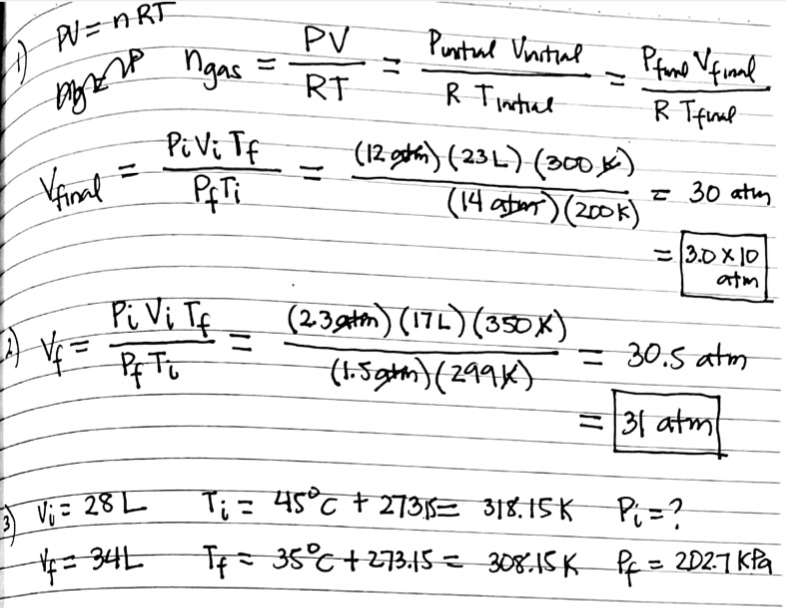 1) PV = nRT
n gas = PV / RT = Pinitial Vinitial / R Tinitial = Pfinal Vfinal / R Tfinal
Vfinal = Pi Vi Tf / Pf Ti = (12 atm) (23 L) (300 K) / (14 atm) (200 K) = 30 atm
= 3.0 x 10 atm
2) Vf = Pi Vi Tf / Pf Ti = (2.3 atm) (17 L) (350 K) / (1.5 atm) (299 K) = 30.5 atm
= 31 atm
3) Vi = 28 L Ti = 45°C + 273.15 = 318.15 K Pi = ?
Vf = 34 L Tf = 35°C + 273.15 = 308.15 K Pf = 202.7 kPa